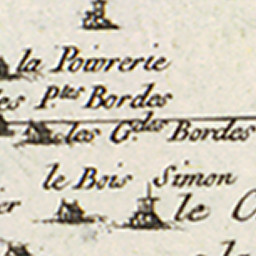 la Poivrerie
les P.tes Bordes
les G.des Bordes
le Bois Simon
le